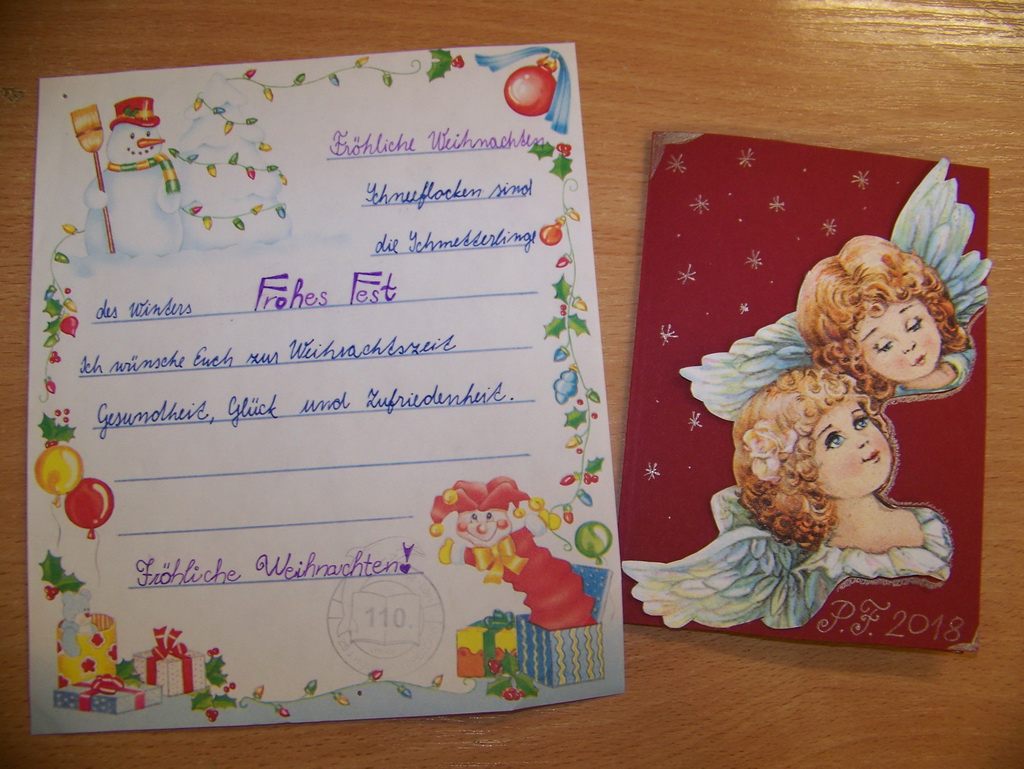 Fröhliche Weihnachten
Schneeflocken sind
die Schmetterlinge
des Winters
Frohes Fest
Ich wünsche Euch zur Weihnachtszeit
Gesundheit, Glück und Zufriedenheit.
Fröhliche Weihnachten!
110.
P.F. 2018